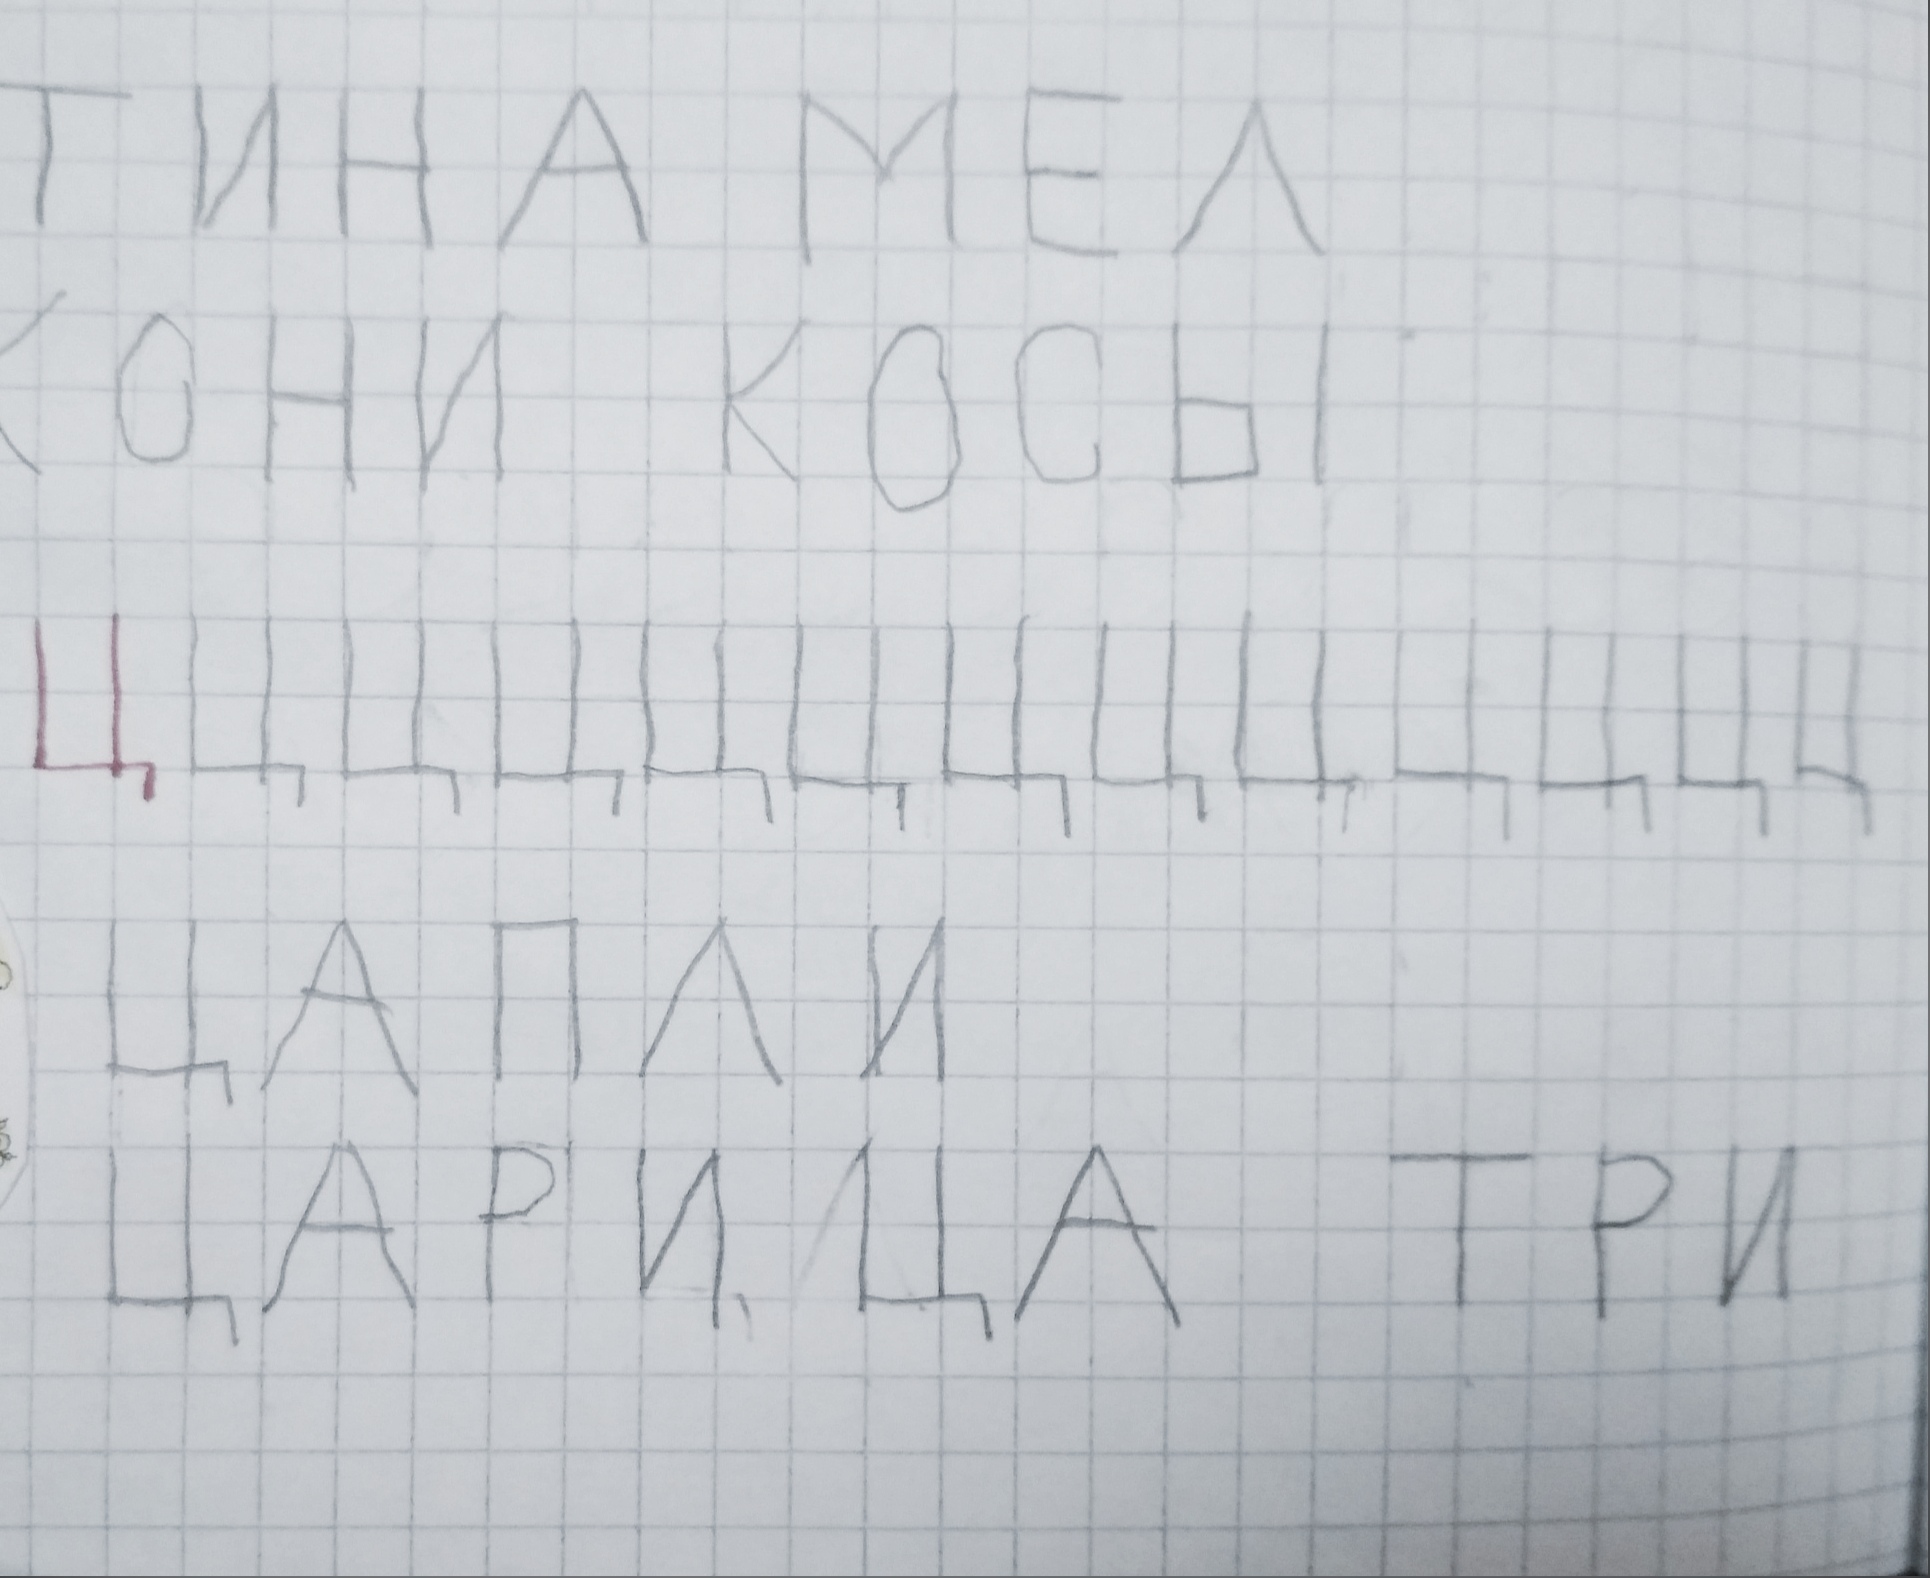 ТИНА МЕЛ
КОНИ КОСЫ
Ц Ц Ц Ц Ц Ц Ц Ц Ц Ц Ц Ц Ц
ЦАПЛИ
ЦАРИЦА ТРИ